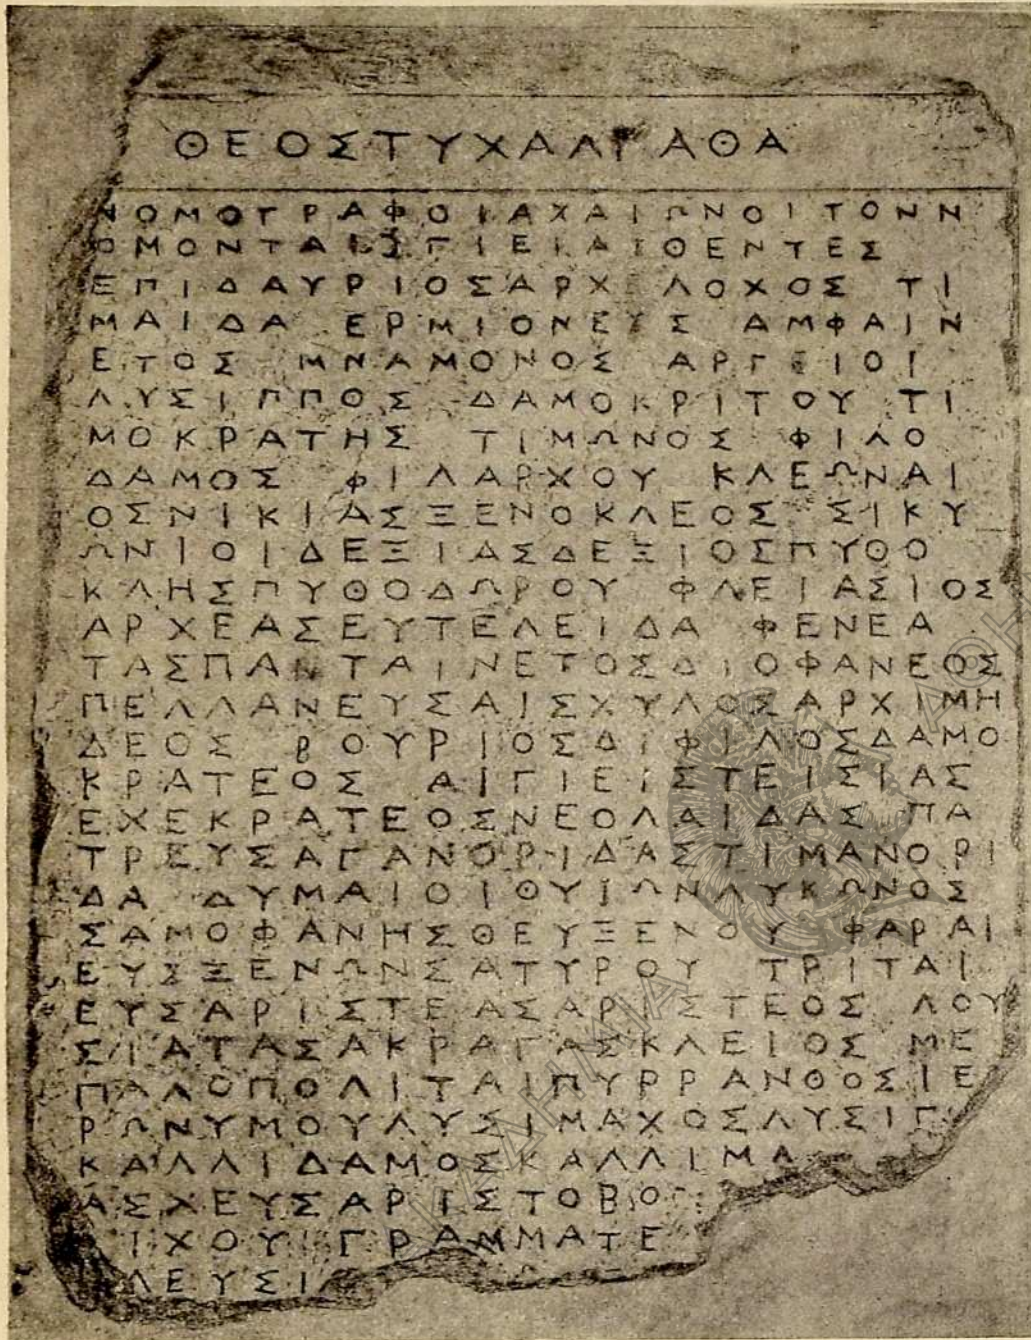 ΘΕΟΣΤΥΧΑΑΓΑΘΑ
ΝΟΜΟΓΡΑΦΟΙΑΧΑΙΩΝΟΙΤΟΝΝ
ΟΜΟΝΤΑΙΥΓΙΕΙΑΙΘΕΝΤΕΣ
ΕΠΙΔΑΥΡΙΟΣΑΡΧΕΛΟΧΟΣ ΤΙ
ΜΑΙΔΑ ΕΡΜΙΟΝΕΥΣ ΑΜΦΑΙΝ
ΕΤΟΣ ΜΝΑΜΟΝΟΣ ΑΡΓΕΙΟΙ
ΛΥΣΙΠΠΟΣ ΔΑΜΟΚΡΙΤΟΥ ΤΙ
ΜΟΚΡΑΤΗΣ ΤΙΜΩΝΟΣ ΦΙΛΟ
ΔΑΜΟΣ ΦΙΛΑΡΧΟΥ ΚΛΕΩΝΑΙ
ΟΣΝΙΚΙΑΣΞΕΝΟΚΛΕΟΣ ΣΙΚΥ
ΩΝΙΟΙΔΕΞΙΑΣΔΕΞΙΟΣΠΥΘΟ
ΚΛΗΣΠΥΘΟΔΩΡΟΥ ΦΛΕΙΑΣΙΟΣ
ΑΡΧΕΑΣΕΥΤΕΛΕΙΔΑ ΦΕΝΕΑ
ΤΑΣΠΑΝΤΑΙΝΕΤΟΣΔΙΟΦΑΝΕΟΣ
ΠΕΛΛΑΝΕΥΣΑΙΣΧΥΛΟΣΑΡΧΙΜΗ
ΔΕΟΣ ΒΟΥΡΙΟΣΔΙΦΙΛΟΣΔΑΜΟ
ΚΡΑΤΕΟΣ ΑΙΓΙΕΙΣΤΕΙΣΙΑΣ
ΕΧΕΚΡΑΤΕΟΣΝΕΟΛΑΙΔΑΣ ΠΑ
ΤΡΕΥΣΑΓΑΝΟΡΙΔΑΣΤΙΜΑΝΟΡΙ
ΔΑ ΔΥΜΑΙΟΙΘΥΙΩΝΛΥΚΩΝΟΣ
ΣΑΜΟΦΑΝΗΣΘΕΥΞΕΝΟΥ ΦΑΡΑΙ
ΕΥΣΞΕΝΩΝΣΑΤΥΡΟΥ ΤΡΙΤΑΙ
ΕΥΣΑΡΙΣΤΕΑΣΑΡΙΣΤΕΟΣ ΛΟΥ
ΣΙΑΤΑΣΑΚΡΑΓΑΣΚΛΕΙΟΣ ΜΕ
ΓΑΛΟΠΟΛΙΤΑΙΠΥΡΡΑΝΘΟΣΙΕ
ΡΩΝΥΜΟΥΛΥΣΙΜΑΧΟΣΛΥΣΙΓ
ΚΑΛΛΙΔΑΜΟΣΚΑΛΛΙΜΑ
ΑΣΧΕΥΣΑΡΙΣΤΟΒΟ
ΙΧΟΥΓΡΑΜΜΑΤΕ
ΛΕΥΣΙ